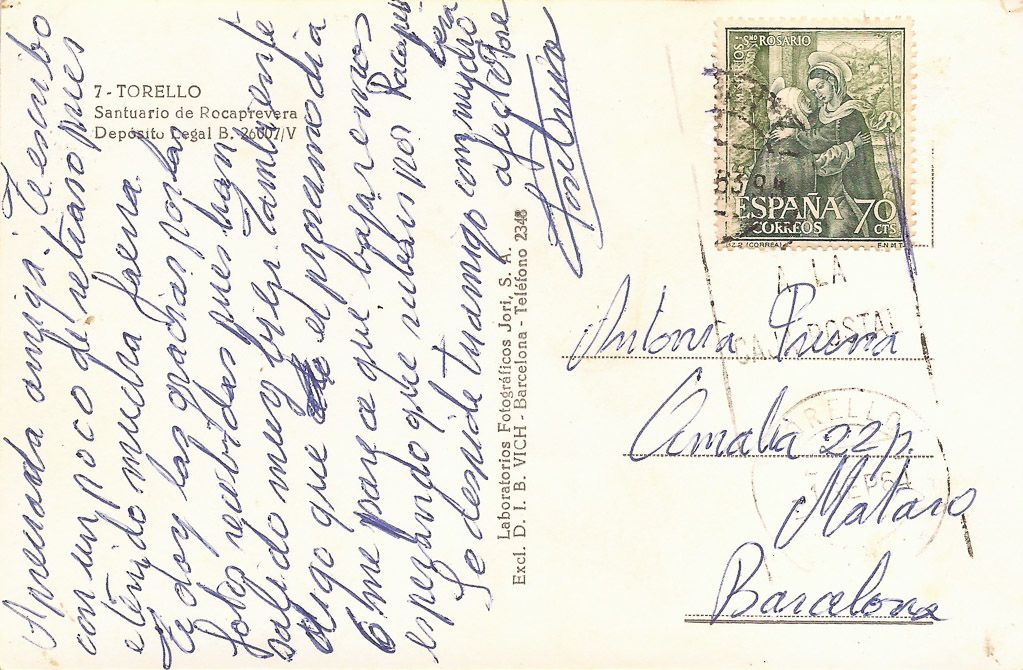 7 - TORELLO
Santuario de Rocaprevera
Depósito Legal B. 26007/V
Apreciada amiga: Te escribo
con un poco de retraso pues
e tenido mucha faena.
Te doy las gracias por las
fotos recibidas pues han
salido muy bien tambien te
digo que el procsimo dia
6 me parece que bajaremos
esperando que subais por Rocaprevera
Se despide tu amigo con mucho
afecto Jose
Laboratorios Fotográficos Jori, S. A.
Excl. D. I. B. VICH - Barcelona - Teléfono 2348
S.MO ROSARIO
ESPAÑA 70
CORREOS CTS
(CORREA) F.N.M.T.
A LA
POSTAL
TORELLO
SEP 64
Antonia Pruna
Amalia 22 p.
Mataro
Barcelona